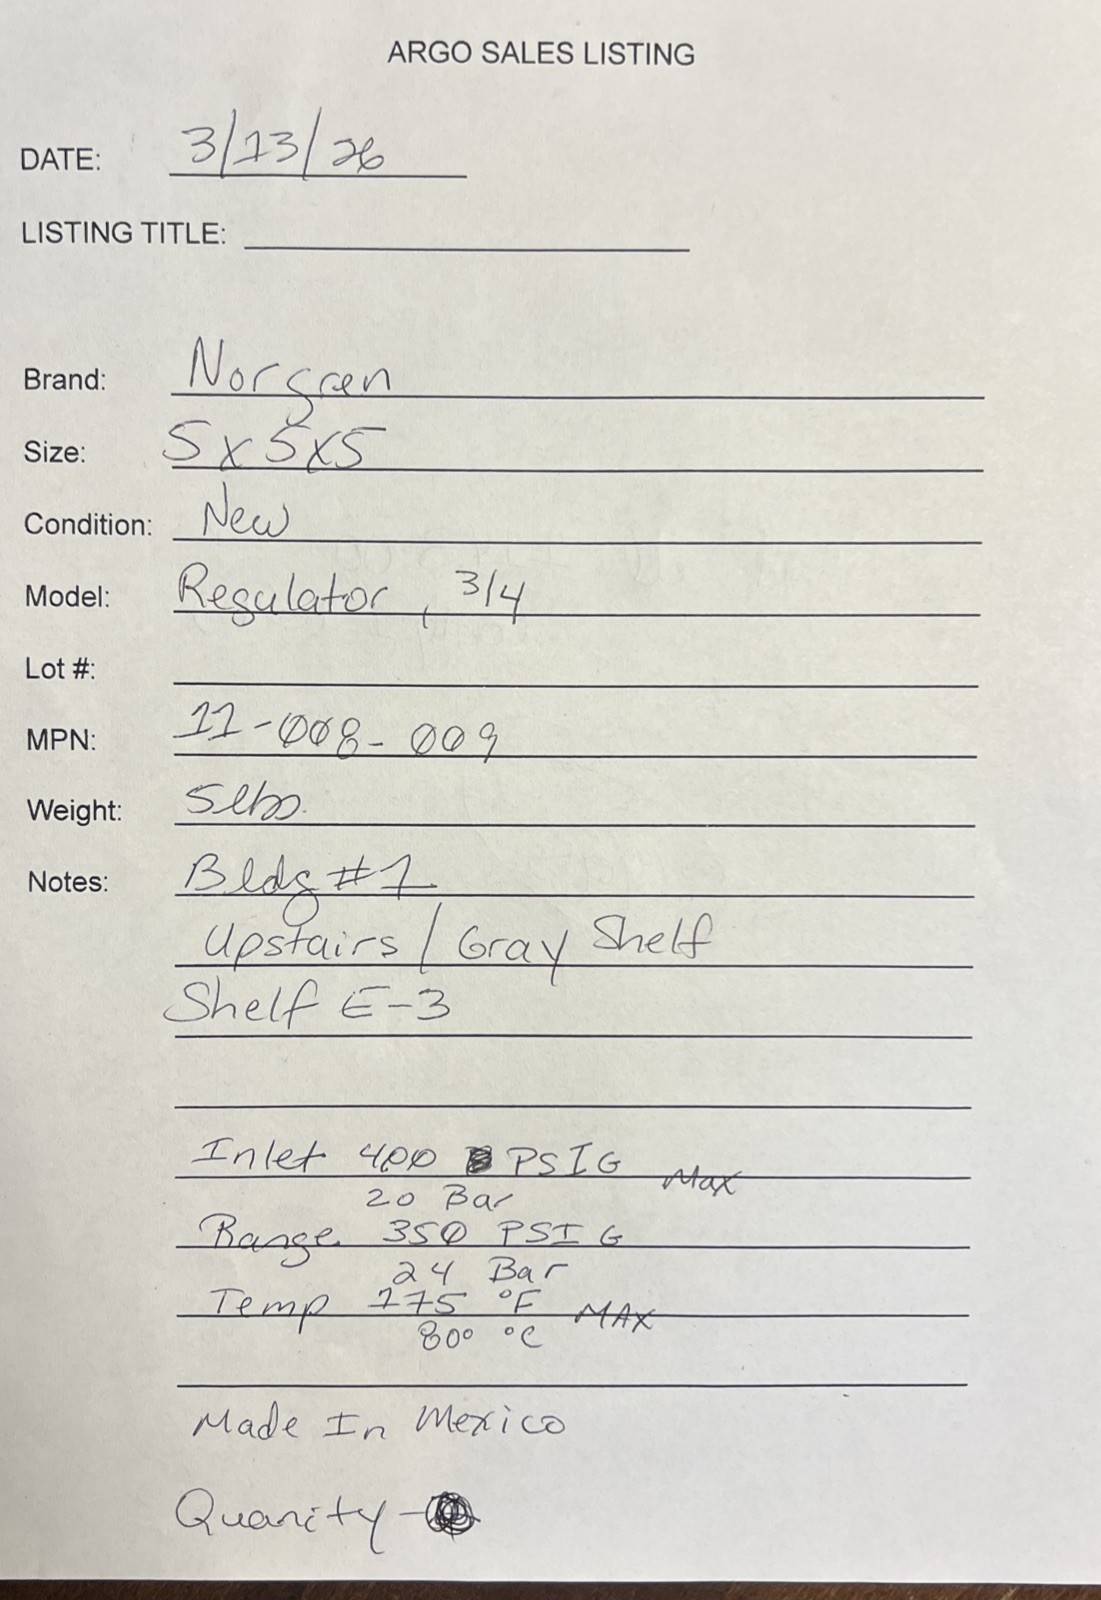 ARGO SALES LISTING
DATE: 3/13/26
LISTING TITLE:
Brand: Norgren
Size: 5x5x5
Condition: New
Model: Regulator, 3/4
Lot #:
MPN: 11-008-009
Weight: 5lbs.
Notes: Bldg #1
Upstairs / Gray Shelf
Shelf E-3
Inlet 400 PSIG Max
20 Bar
Range 350 PSIG
24 Bar
Temp 175 °F MAX
80° °C
Made In Mexico
Quanity -